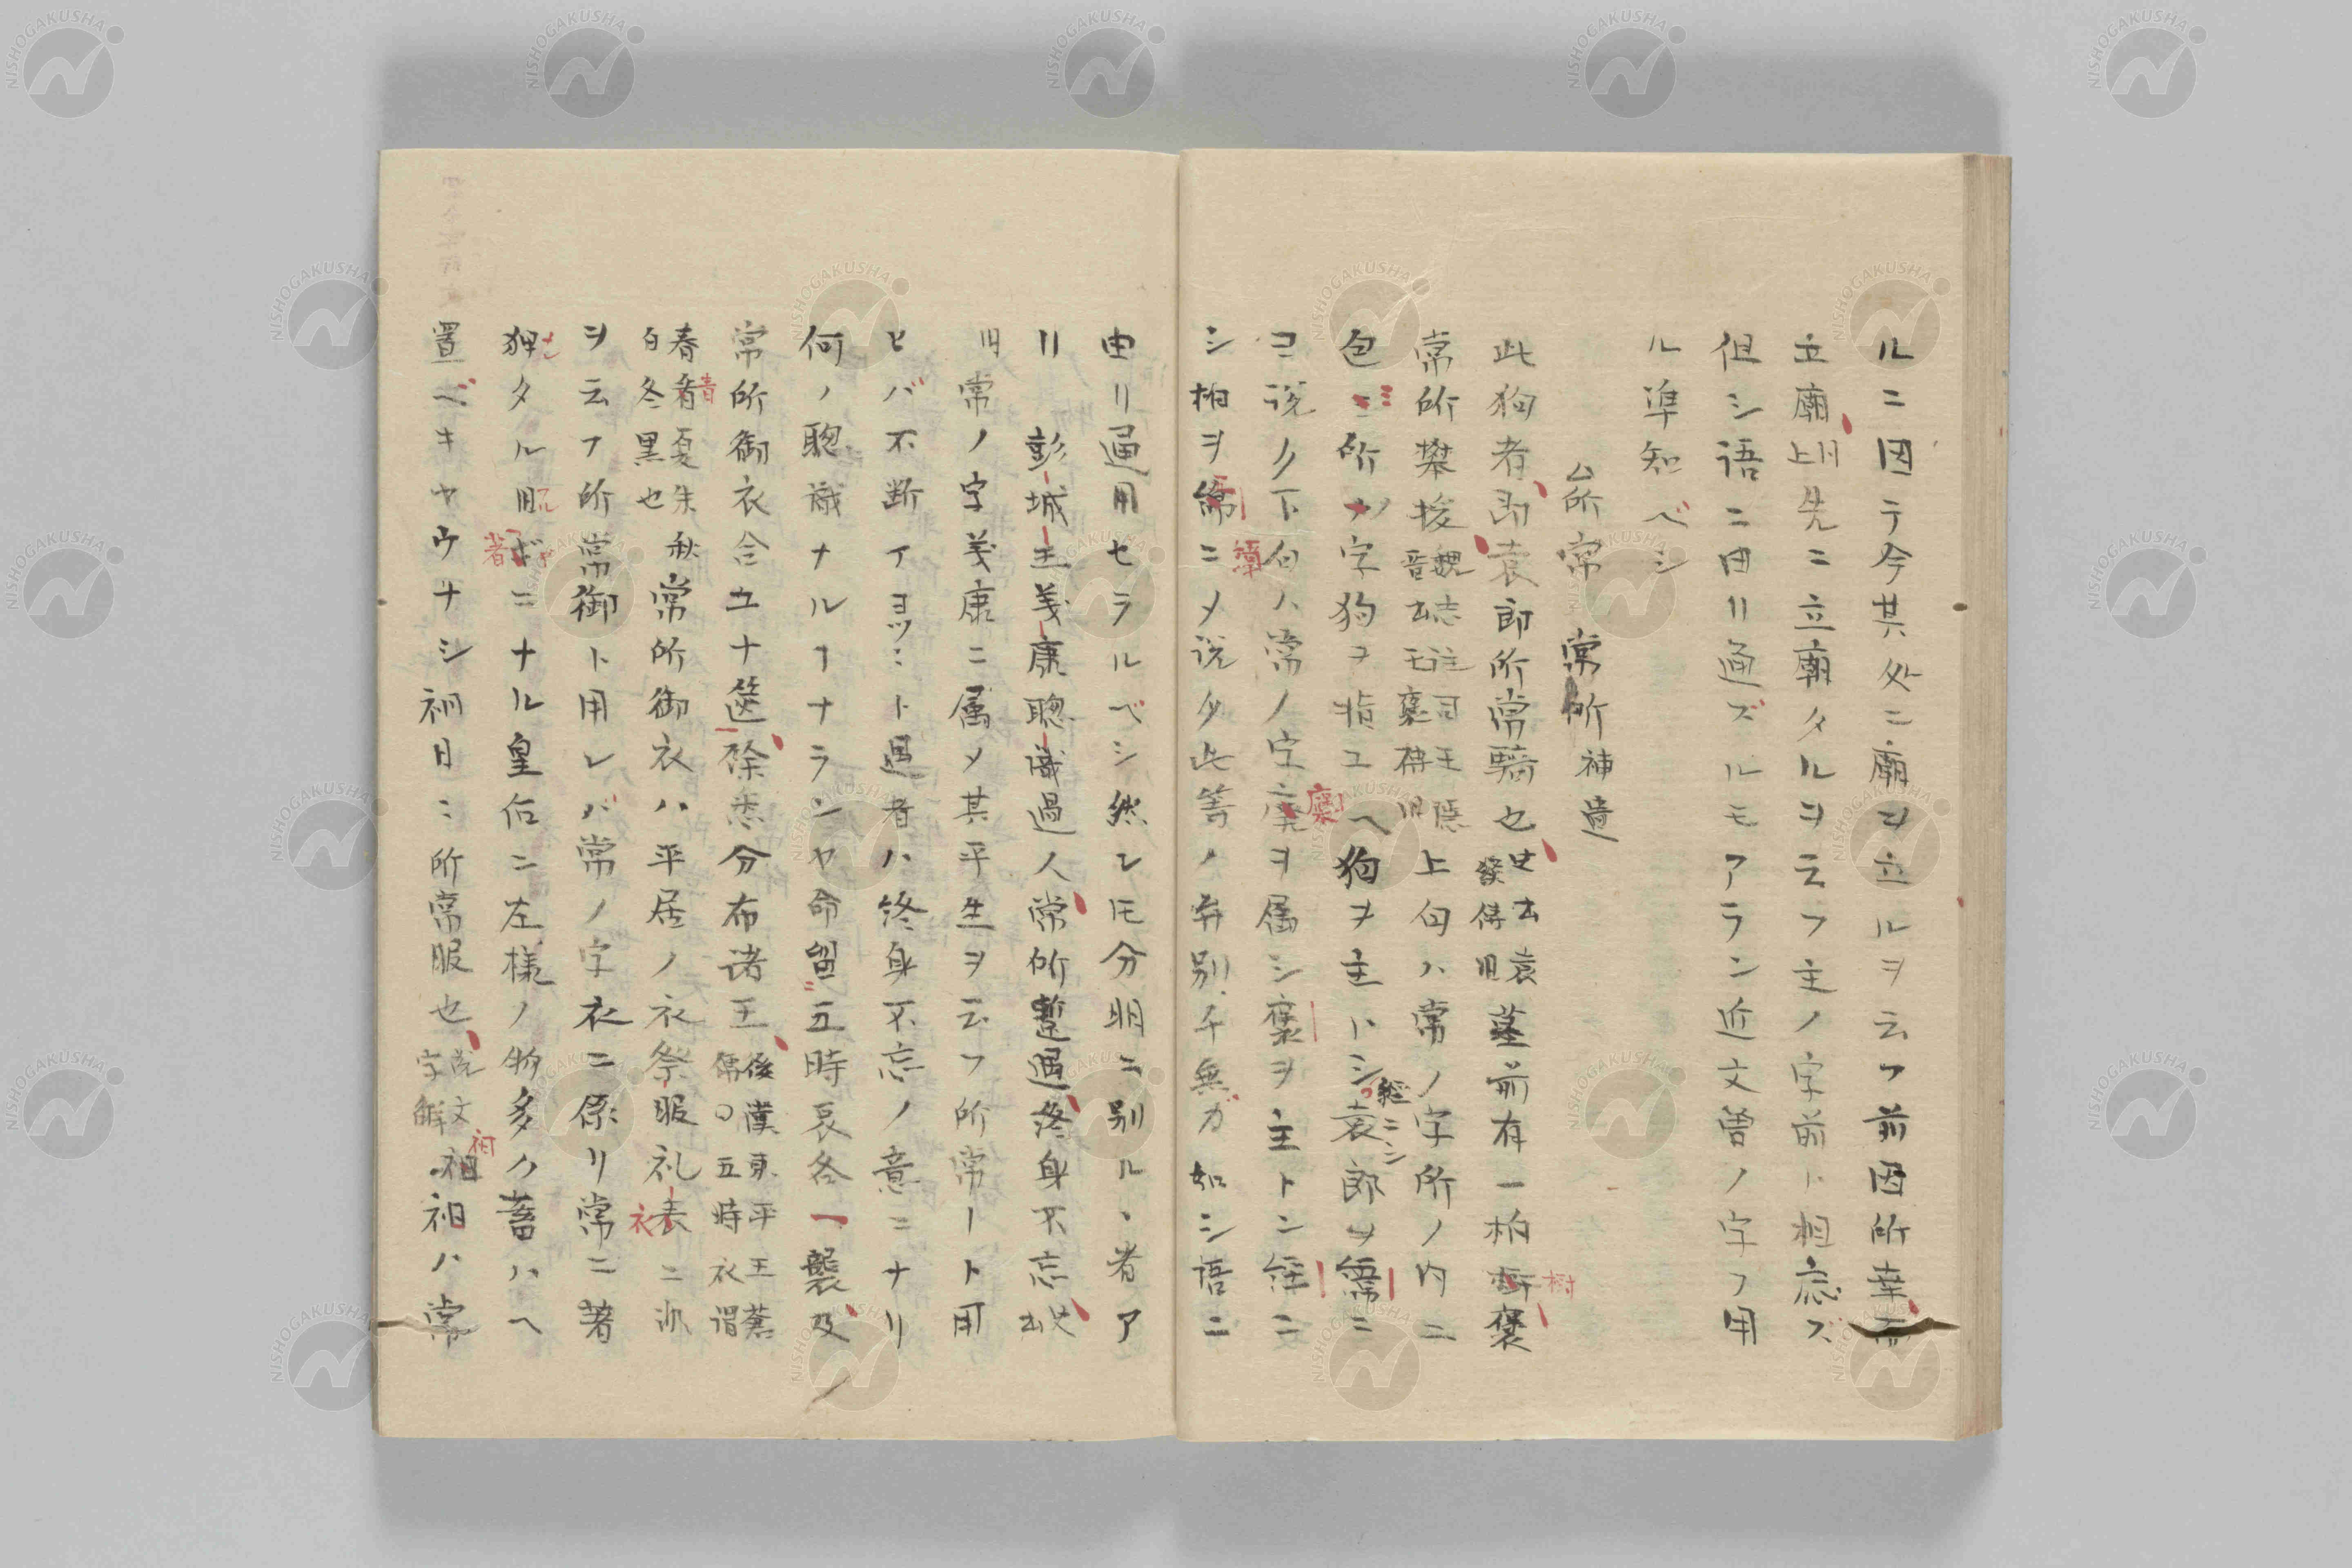 ルニ因テ今其处ニ廟ヲ立ルヲ云フ前因所幸而
立廟上川先ニ立廟タルヲ云フ主ノ字前ト相応ズ
但シ語ニ由リ通ズルモアラン近文曽ノ字ヲ用
ル準知ベシ
△所常 常所 補遺
此狗者即袁郎所常騎也世云袁粲傳旧墓前有一柏樹褒
常所攀援魏志注司王隠晋書云王褒傳旧上句ハ常ノ字所ノ内ニ
包ミ所ノ字狗ヲ指ユヘ狗ヲ主トシ袁郎ヲ帶ニ
コニ説ク下句ハ常ノ字褒ヲ属シ褒ヲ主トシ經ニ
シ柏ヲ帶ニメ説タ此等ノ弁別チ無カ如シ語ニ
由リ通用セラルベシ然レ𪜈分明ニ別ル、者ア
リ 彭城王義康聰識過人常所暫遇終身不忘史云
旧常ノ字義康ニ属メ其平生ヲ云フ所常ート用
ヒバ不断イヨツミト遇者ハ終身不忘ノ意ニナリ
何ノ聰識ナルヿナランヤ命留五時衣各一襲及
常所御衣合五十篋餘悉分布諸王後漢東平王蒼傳〇五時衣謂
春青夏朱秋白冬黒也常所御衣ハ平居ノ衣祭服礼衣ニ非
ヲ云フ所常御ト用レバ常ノ字衣ニ係リ常ニ著
狎タル服ギニナル皇后ニ左様ノ物多ク蓄ハヘ
置ベキヤウナシ衵日ニ所常服也説文字解衵衵ハ常